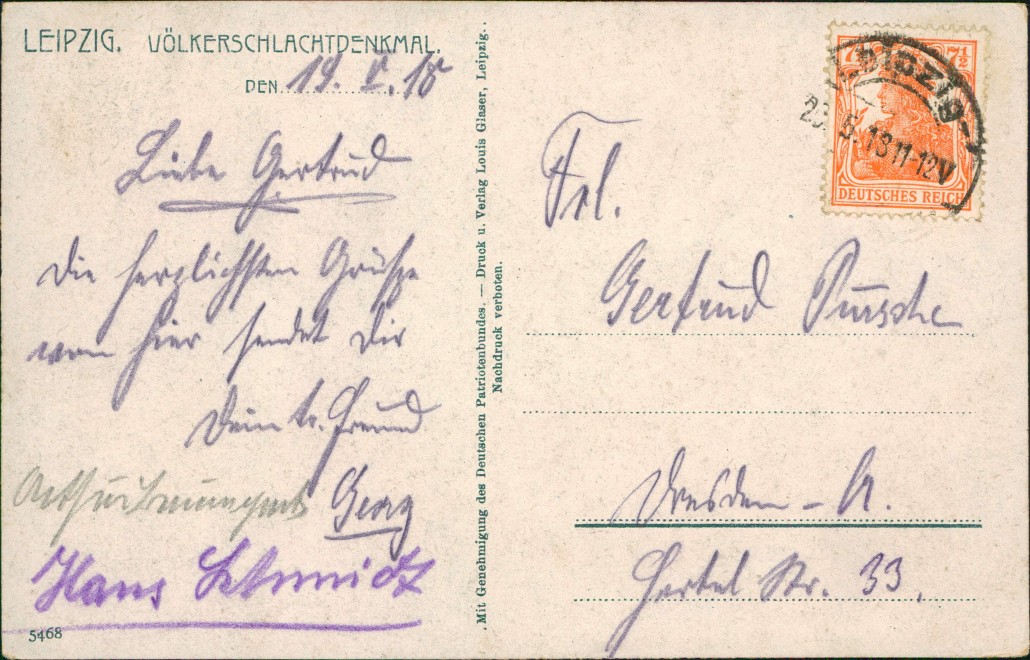 LEIPZIG. VÖLKERSCHLACHTDENKMAL.
DEN 19. V. 18
Liebe Gertrud
die herzlichsten Grüße
von hier sendet Dir
Dein tr. Freund
Georg
Hans Schmidt
5468
Mit Genehmigung des Deutschen Patriotenbundes. — Druck u. Verlag Louis Glaser, Leipzig.
Nachdruck verboten.
7½ 7½
DEUTSCHES REICH
Leipzig
5.18 11-12V
Frl.
Gertrud Pursche
Dresden - A.
Hertel Str. 33.